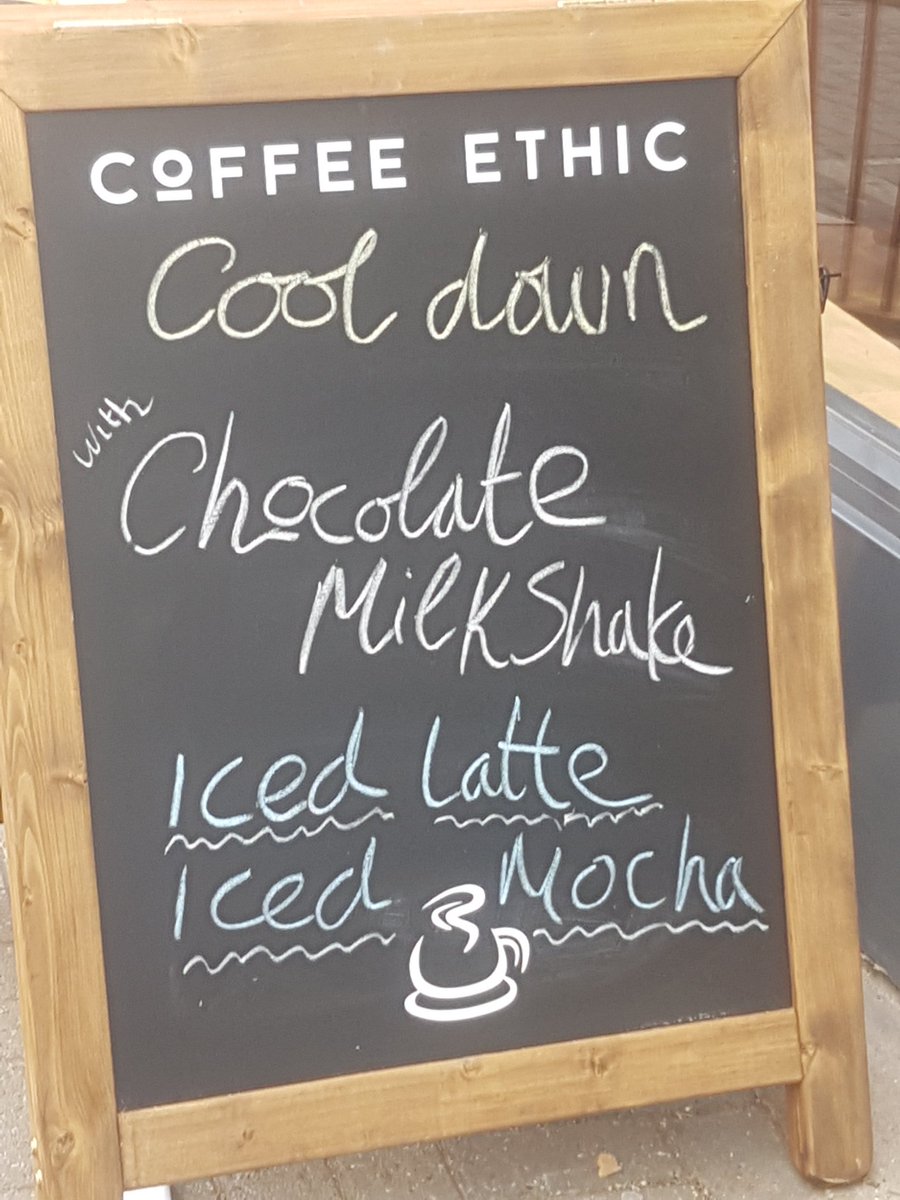 COFFEE ETHIC
Cool down
with
Chocolate
Milkshake
Iced Latte
Iced Mocha